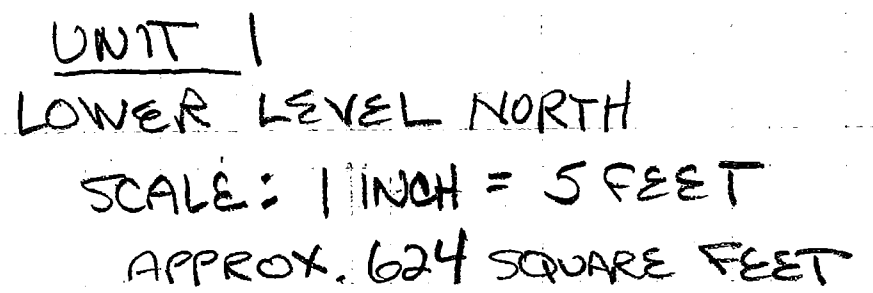 UNIT 1
LOWER LEVEL NORTH
SCALE: 1 INCH = 5 FEET
APPROX. 624 SQUARE FEET